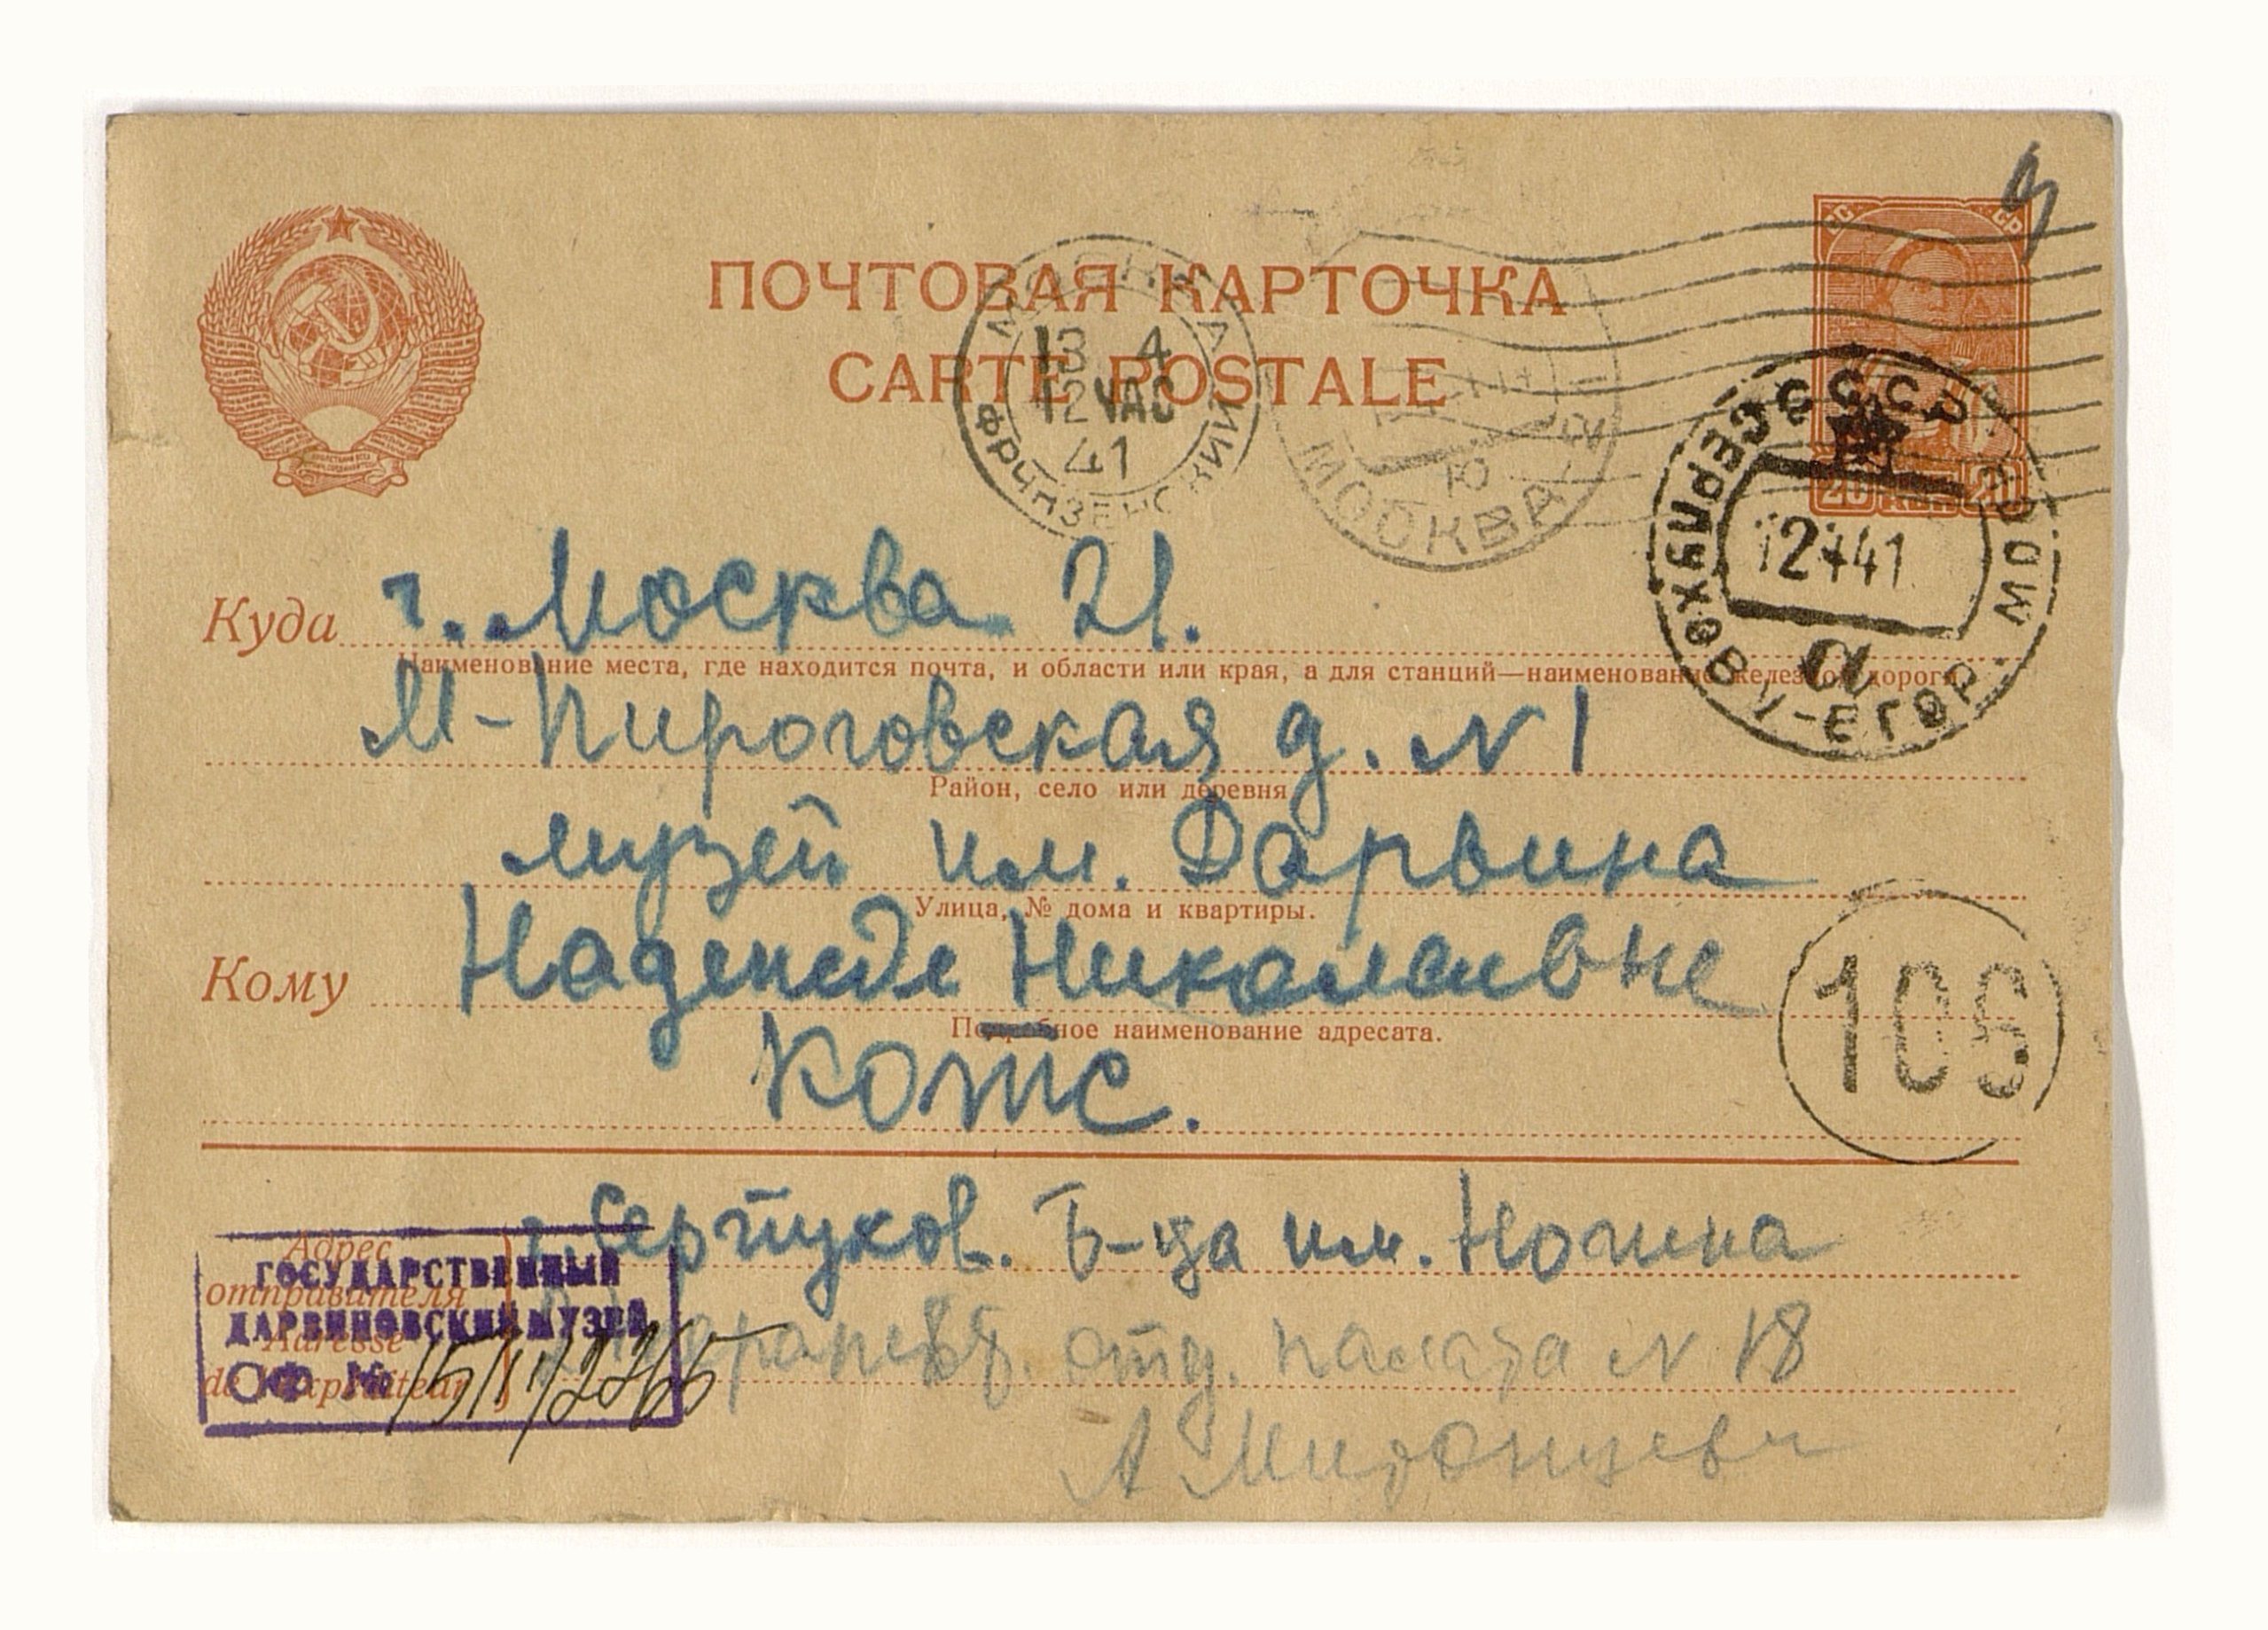 ПОЧТОВАЯ КАРТОЧКА
CARTE POSTALE
МОСКВА
13 4
12 ЧАС
41
ФРУНЗЕНСКИЙ
МОСКВА
Ю
СС СР
20 КОП 20
СССР
СЕРПУХОВ
12 4 41
а
Куда г. Москва 21.
Наименование места, где находится почта, и области или края, а для станций—наименование железной дороги
М-Пироговская д. N 1
Район, село или деревня
музей им. Дарвина
Улица, № дома и квартиры.
Кому Надежде Николаевне
Подробное наименование адресата.
Котс.
109
г. Серпухов. Б-ца им. Ногина
Адрес
отправителя
Adresse
de l'expéditeur
ГОСУДАРСТВЕННЫЙ
ДАРВИНОВСКИЙ МУЗЕЙ
ОФ №
отд. палата N 18